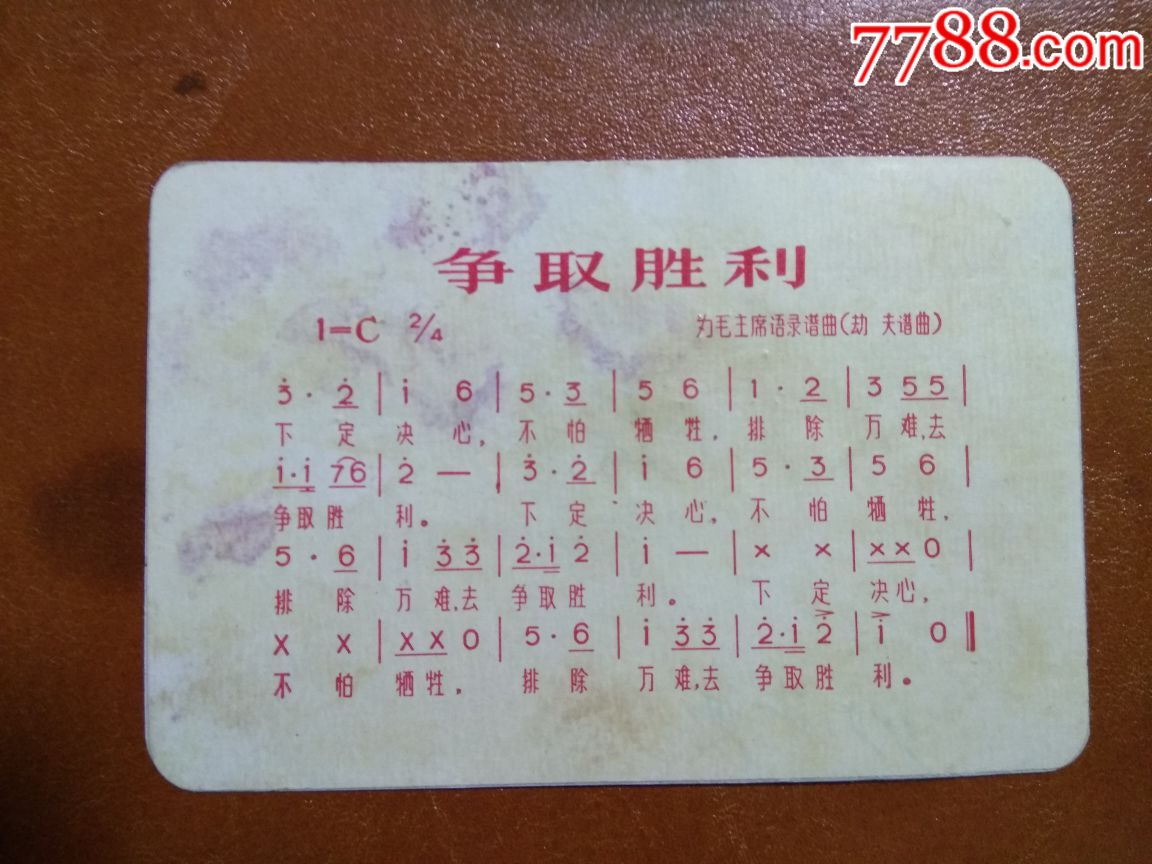 7788.com
争取胜利
1=C 2/4 为毛主席语录谱曲(劫 夫谱曲)
3̇ · 2̇ | 1̇ 6 | 5 · 3 | 5 6 | 1 · 2 | 3 5 5 |
下 定 决 心, 不 怕 牺 牲, 排 除 万 难,去
1̇ · 1̇ 7 6 | 2̇ — | 3̇ · 2̇ | 1̇ 6 | 5 · 3 | 5 6 |
争取胜 利。 下 定 决 心, 不 怕 牺 牲,
5 · 6 | 1̇ 3̇ 3̇ | 2̇ · 1̇ 2̇ | 1̇ — | x x | x x 0 |
排 除 万 难,去 争取胜 利。 下 定 决心,
x x | x x 0 | 5 · 6̇ | 1̇ 3̇ 3̇ | 2̇ · 1̇ 2̇ | 1̇ 0 ‖
不 怕 牺牲, 排 除 万 难,去 争取胜 利。